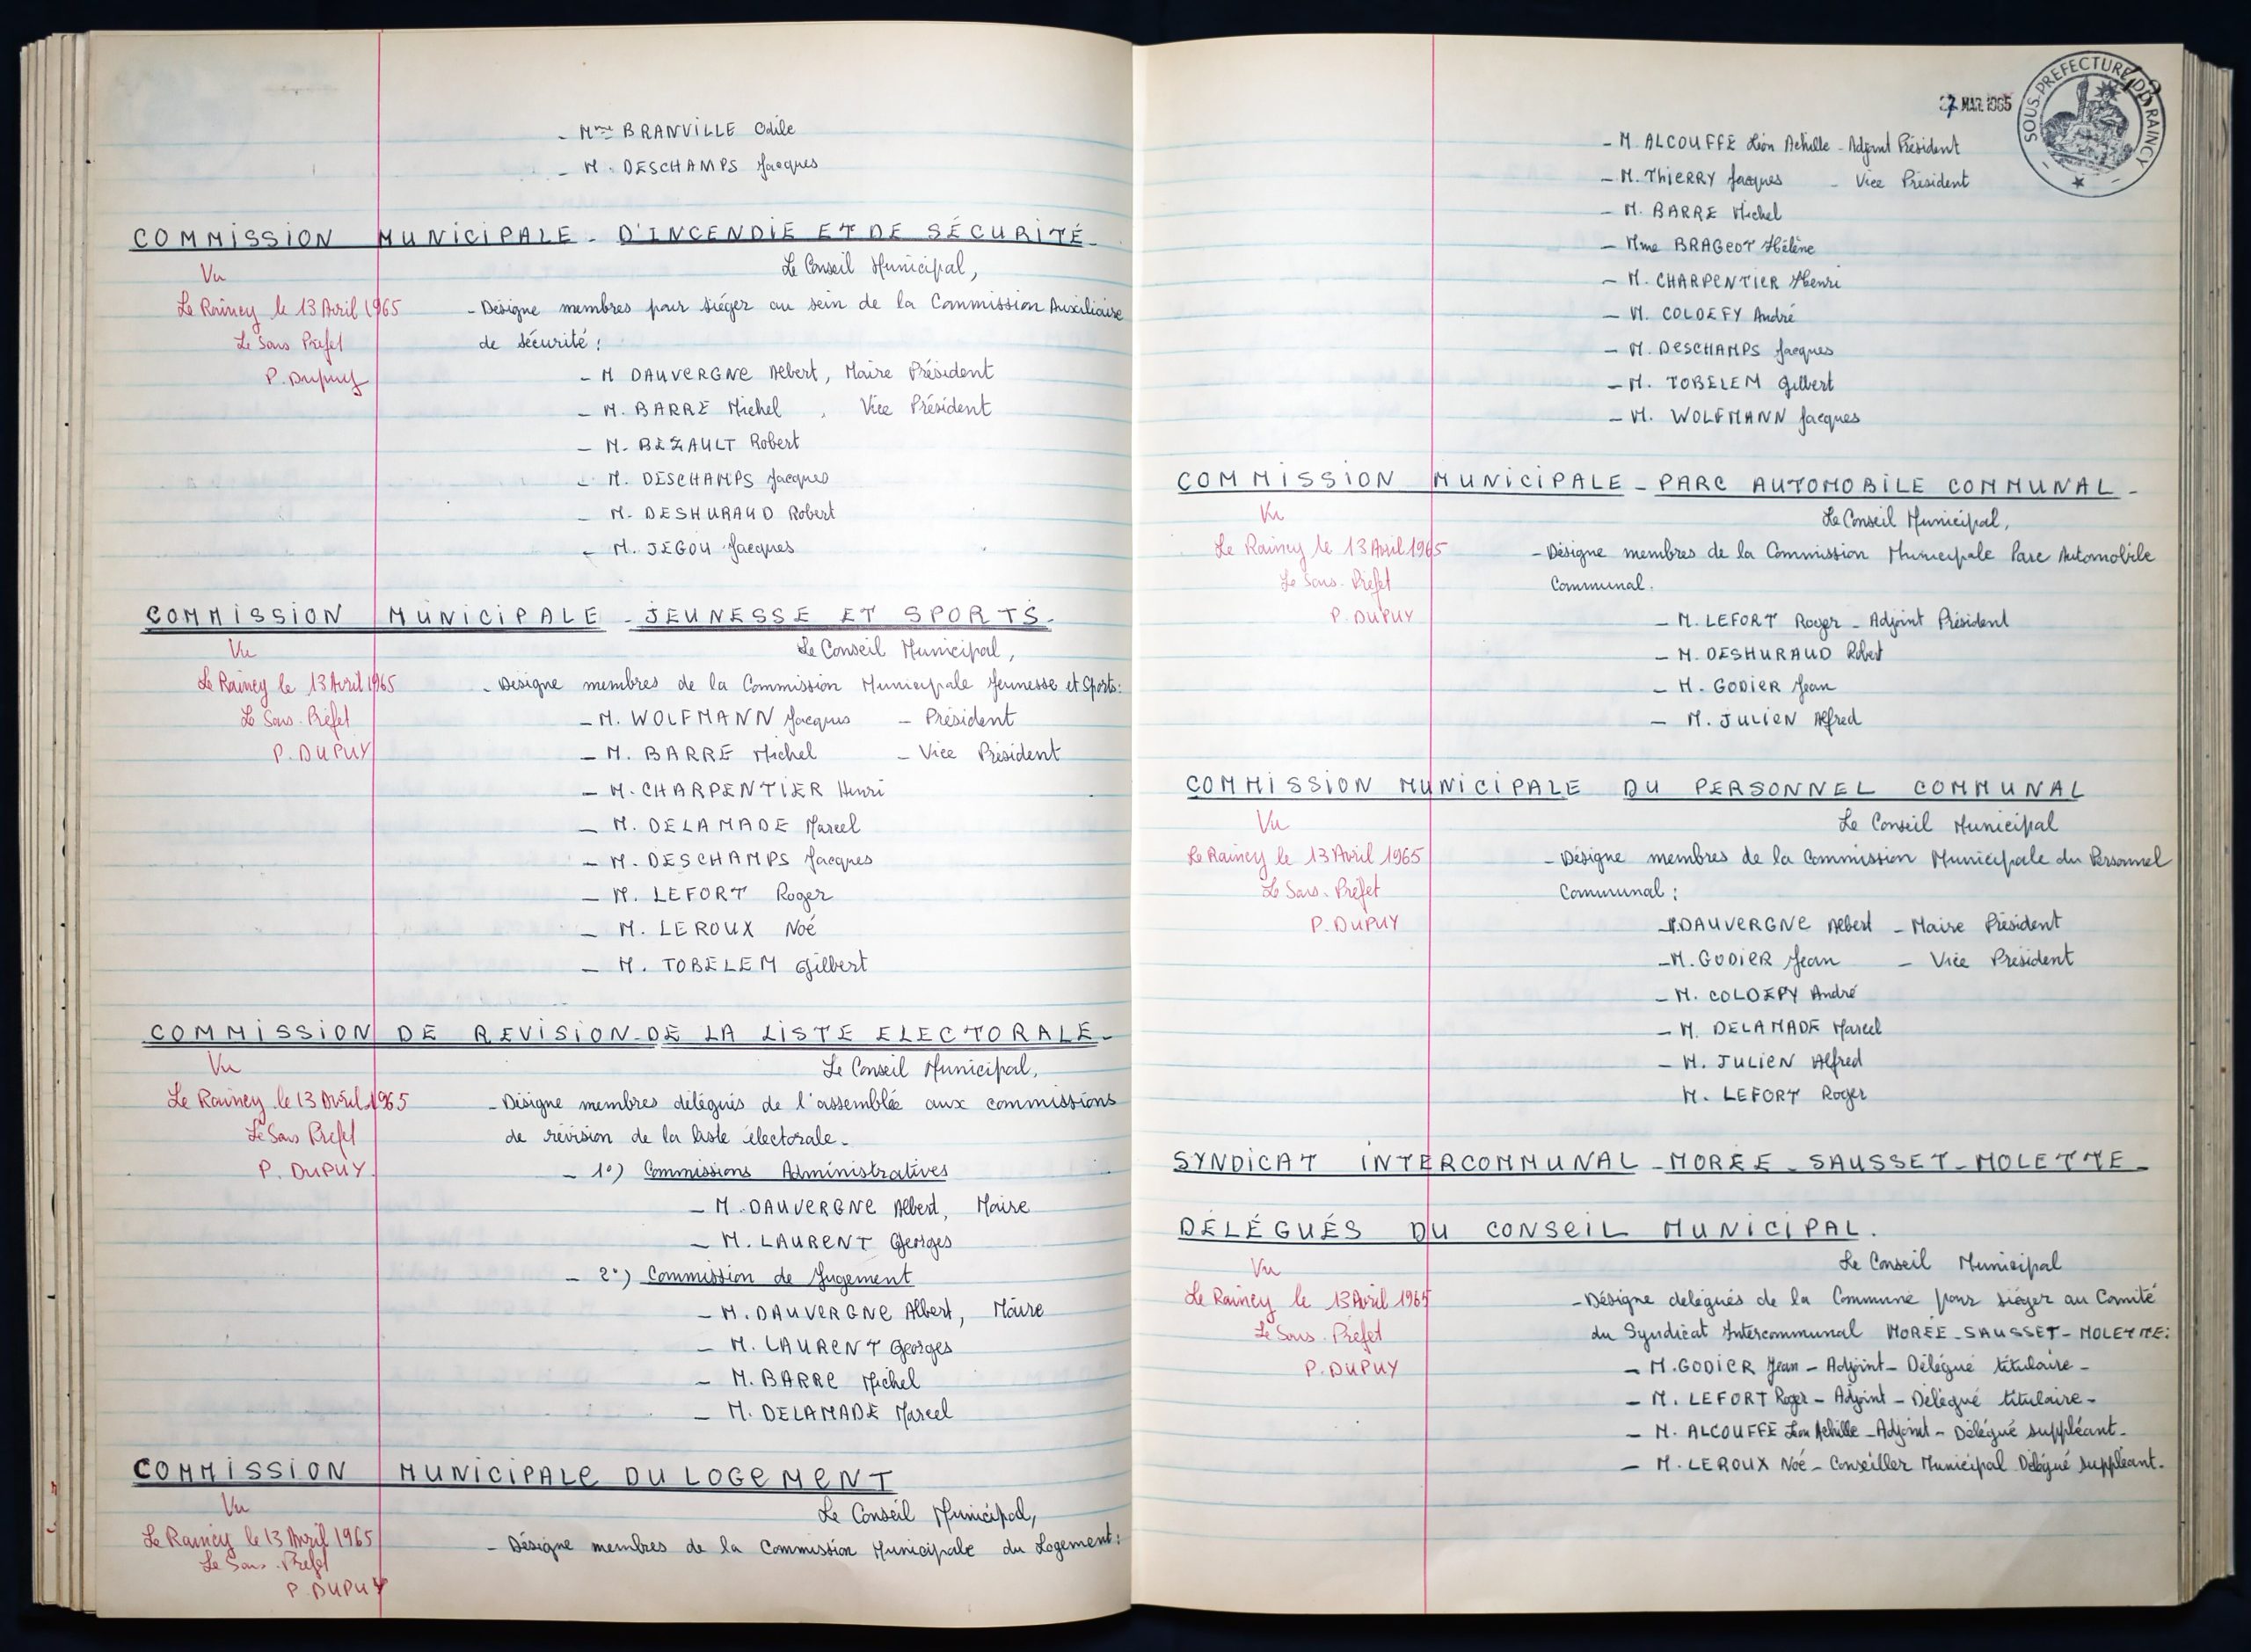 - Mme BRANVILLE Odile
- M. DESCHAMPS Jacques
COMMISSION MUNICIPALE - D'INCENDIE ET DE SÉCURITÉ-
Vu
Le Conseil Municipal,
Le Raincy le 13 Avril 1965
- Désigne membres pour siéger au sein de la Commission Auxiliaire
Le Sous Préfet
de sécurité :
P. Dupuy
- M DAUVERGNE Albert, Maire Président
- M. BARRE Michel , Vice Président
- M. BEZAULT Robert
- M. DESCHAMPS Jacques
- M. DESHURAUD Robert
- M. JEGOU Jacques
COMMISSION MUNICIPALE - JEUNESSE ET SPORTS-
Vu
Le Conseil Municipal,
Le Raincy le 13 Avril 1965
- Désigne membres de la Commission Municipale Jeunesse et Sports:
Le Sous-Préfet
- M. WOLFMANN Jacques - Président
P. DUPUY
- M. BARRE Michel - Vice Président
- M. CHARPENTIER Henri
- M. DELAMADE Marcel
- M. DESCHAMPS Jacques
- M. LEFORT Roger
- M. LEROUX Noé
- M. TOBELEM Gilbert
COMMISSION DE REVISION-DE LA LISTE ELECTORALE-
Vu
Le Conseil Municipal,
Le Raincy le 13 Avril 1965
- Désigne membres délégués de l'assemblée aux commissions
Le Sous Préfet
de révision de la liste électorale-
P. DUPUY.
- 1°) Commissions Administratives
- M. DAUVERGNE Albert, Maire
- M. LAURENT Georges
- 2°) Commission de Jugement
- M. DAUVERGNE Albert, Maire
- M. LAURENT Georges
- M. BARRE Michel
- M. DELAMADE Marcel
COMMISSION MUNICIPALE DU LOGEMENT
Vu
Le Conseil Municipal,
Le Raincy le 13 Avril 1965
- Désigne membres de la Commission Municipale du Logement:
Le Sous-Préfet
P. DUPUY
MAR. 1965
SOUS-PREFECTURE DU RAINCY
- M ALCOUFFE Léon Achille - Adjoint Président
- M. THIERRY Jacques - Vice Président
- M. BARRE Michel
- Mme BRAGEOT Hélène
- M. CHARPENTIER Henri
- M. COLDEFY André
- M. DESCHAMPS Jacques
- M. TOBELEM Gilbert
- M. WOLFMANN Jacques
COMMISSION MUNICIPALE - PARC AUTOMOBILE COMMUNAL -
Vu
Le Conseil Municipal,
Le Raincy le 13 Avril 1965
- Désigne membres de la Commission Municipale Parc Automobile
Le Sous-Préfet
Communal.
P. DUPUY
- M. LEFORT Roger - Adjoint Président
- M. DESHURAUD Robert
- M. GODIER Jean
- M. JULIEN Alfred
COMMISSION MUNICIPALE DU PERSONNEL COMMUNAL
Vu
Le Conseil Municipal
Le Raincy le 13 Avril 1965
- Désigne membres de la Commission Municipale du Personnel
Le Sous-Préfet
Communal :
P. DUPUY
- M. DAUVERGNE Albert - Maire Président
- M. GODIER Jean - Vice Président
- M. COLDEFY André
- M. DELAMADE Marcel
- M. JULIEN Alfred
M. LEFORT Roger
SYNDICAT INTERCOMMUNAL - MORÉE - SAUSSET - MOLETTE -
DÉLÉGUÉS DU CONSEIL MUNICIPAL.
Vu
Le Conseil Municipal
Le Raincy le 13 Avril 1965
- Désigne délégués de la Commune pour siéger au Comité
Le Sous-Préfet
du Syndicat Intercommunal MORÉE - SAUSSET - MOLETTE:
P. DUPUY
- M. GODIER Jean - Adjoint - Délégué titulaire -
- M. LEFORT Roger - Adjoint - Délégué titulaire -
- M. ALCOUFFE Léon Achille - Adjoint - Délégué suppléant -
- M. LEROUX Noé - Conseiller Municipal Délégué suppléant.